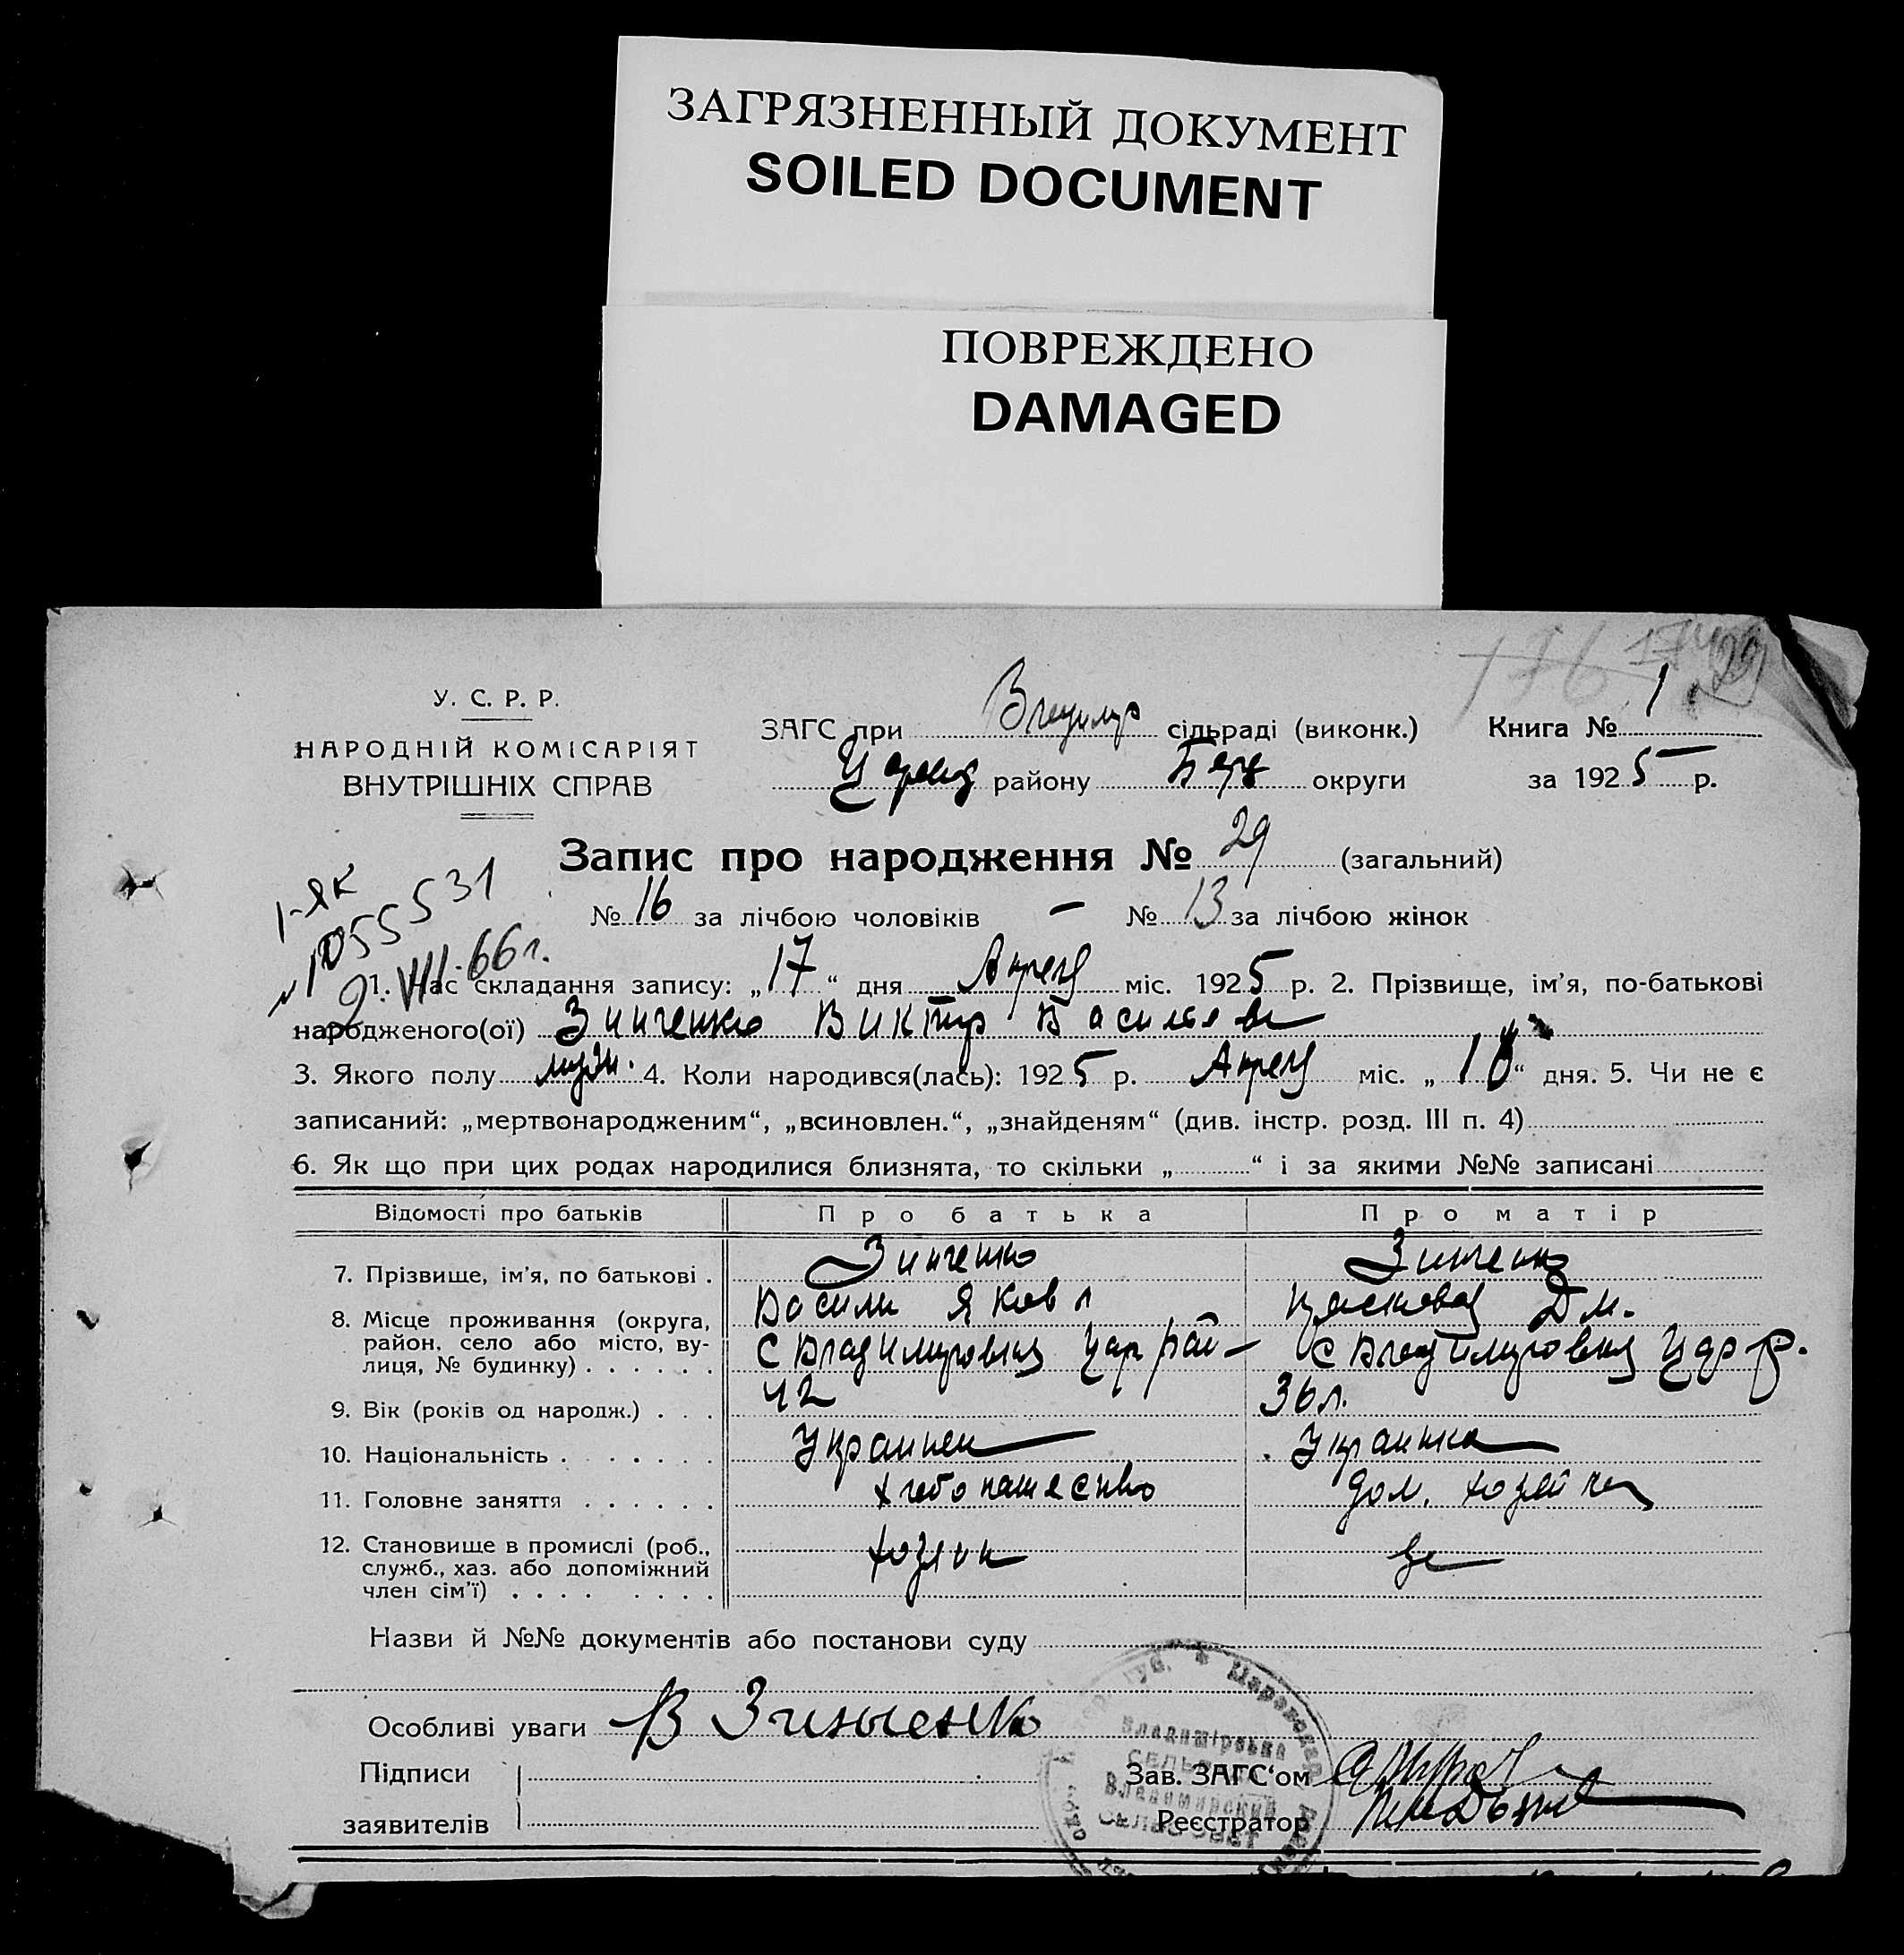 ЗАГРЯЗНЕННЫЙ ДОКУМЕНТ
SOILED DOCUMENT
ПОВРЕЖДЕНО
DAMAGED
176 174 29
У. С. Р. Р.
НАРОДНІЙ КОМІСАРІЯТ
ВНУТРІШНІХ СПРАВ
ЗАГС при Владимир сільраді (виконк.) Книга № 1
района Царев району Берд округи за 1925 р.
Запис про народження № 29 (загальний)
№ 16 за лічбою чоловіків — № 13 за лічбою жінок
1-ЯК
055531
2.VIII.66 г.
1. Час складання запису: „17“ дня Апреля міс. 1925 р. 2. Прізвище, ім'я, по-батькові
народженого(ої) Зинченко Виктор Васильев
3. Якого полу муж. 4. Коли народився(лась): 1925 р. Апреля міс. „10“ дня. 5. Чи не є
записаний: „мертвонародженим“, „всиновлен.“, „знайденям“ (див. інстр. розд. III п. 4)
6. Як що при цих родах народилися близнята, то скільки „ “ і за якими №№ записані
Відомості про батьків Про батька Про матір
7. Прізвище, ім'я, по батькові . Зинченко Зинченко
Васили Яковл Дм.
8. Місце проживання (округа, район, село або місто, вулиця, № будинку) . . . . . . с Владимировка Цар рай— с Владимировка Цар р.
9. Вік (років од народж.) . . . 42 36 л.
10. Національність . . . . . . . Украинец Украинка
11. Головне заняття . . . . . . хлебопашество дом. хозяйка
12. Становище в промислі (роб., служб., хаз. або допоміжний член сім'ї) . . . . . . . . хозяин
Назви й №№ документів або постанови суду
Особливі уваги В Зинченко
Підписи
заявителів
Зав. ЗАГС‘ом
Реєстратор
Владимірська
Владимирский
сельсовет